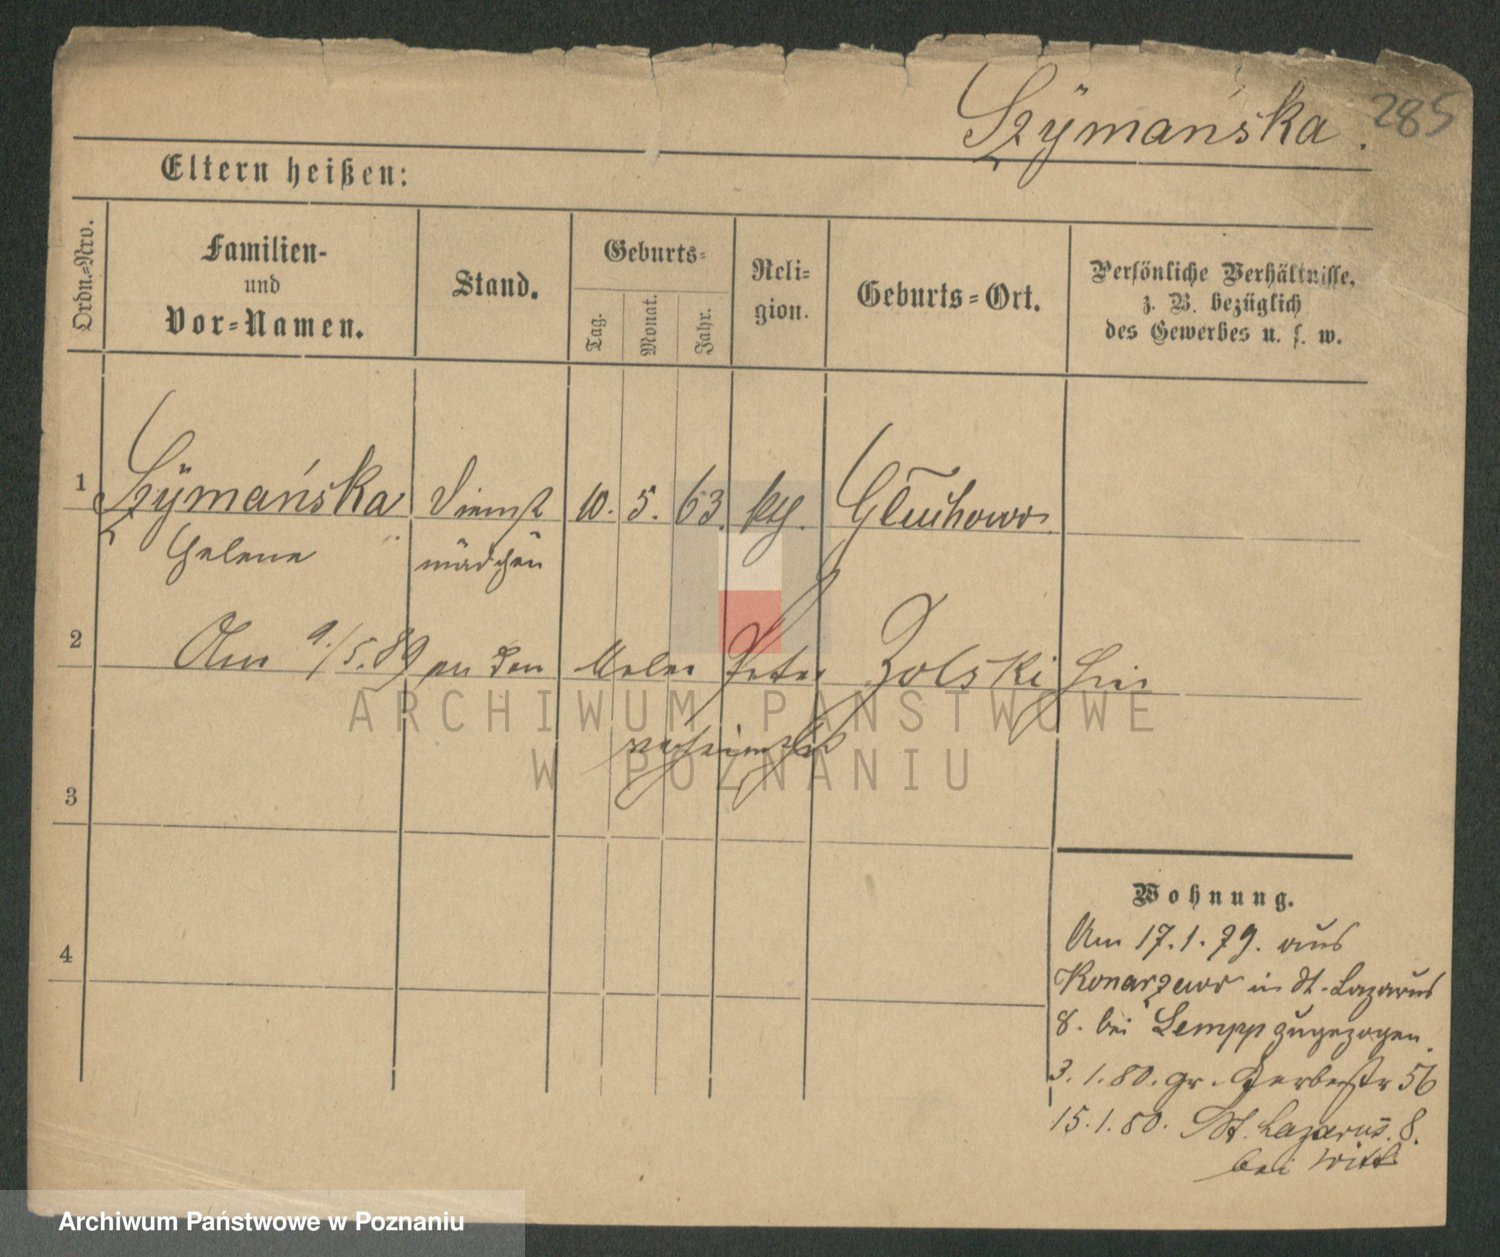 Szÿmańska.
285
Eltern heißen:
Ordn.=Nro.
Familien-
und
Vor=Namen.
Stand.
Geburts=
Tag.
Monat.
Jahr.
Reli=
gion.
Geburts=Ort.
Persönliche Verhältnisse,
z. B. bezüglich
des Gewerbes u. s. w.
1 Szÿmańska Dienst 10. 5. 63. kth. Głuchowo
Helene mädchen
2 Am 9./5.89 an den Maler Peter Zolski hier
verheirathet
3
4
Wohnung.
Am 17.1.79. aus
Konarzewo in St. Lazarus
8. bei Lempp zugezogen.
3.1.80. gr. Gerberstr 56
15.1.80. St. Lazarus. 8.
bei Witt
ARCHIWUM PAŃSTWOWE
W POZNANIU
Archiwum Państwowe w Poznaniu